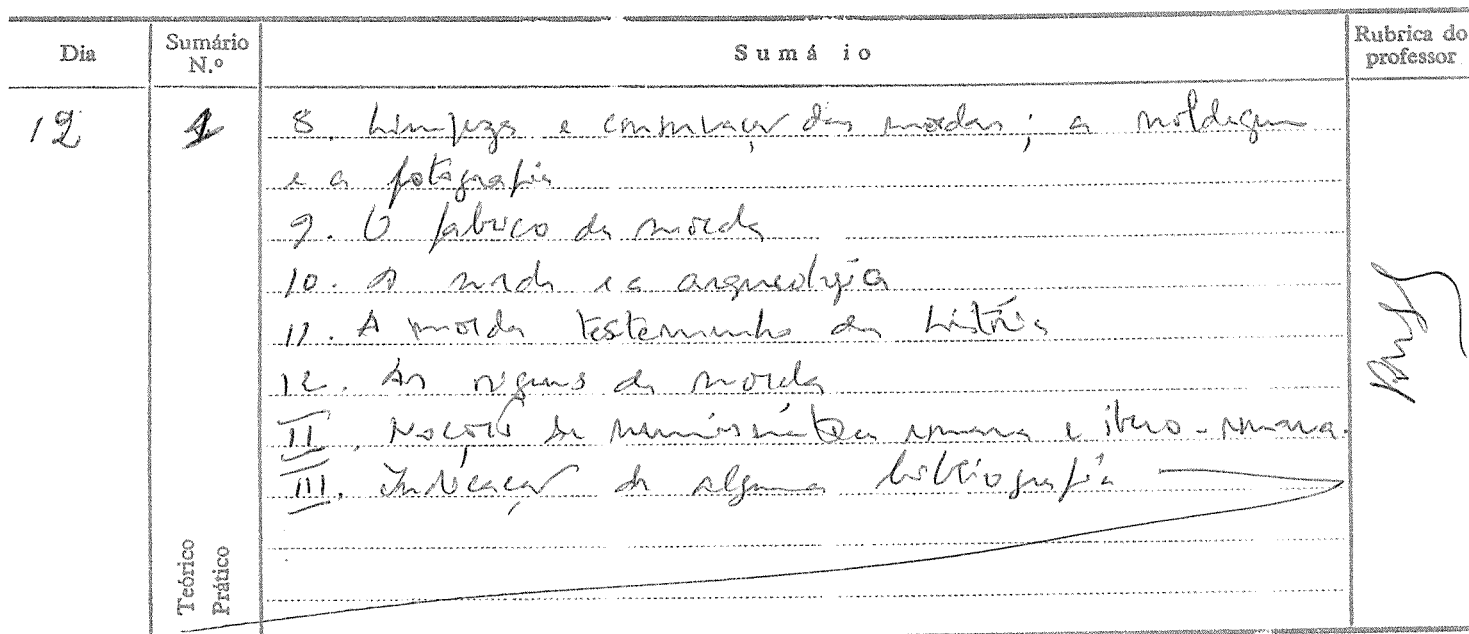 Dia
Sumário N.º
Sumá io
Rubrica do professor
12
1
8. Limpeza e conservação das moedas; a moldagem
e a fotografia
9. O fabrico da moeda
10. A moeda e a arqueologia
11. A moeda testemunho da história
12. As origens da moeda
II. Noções de numismática romana e ibero-romana.
III. Indicação de alguma bibliografia
Teórico
Prático